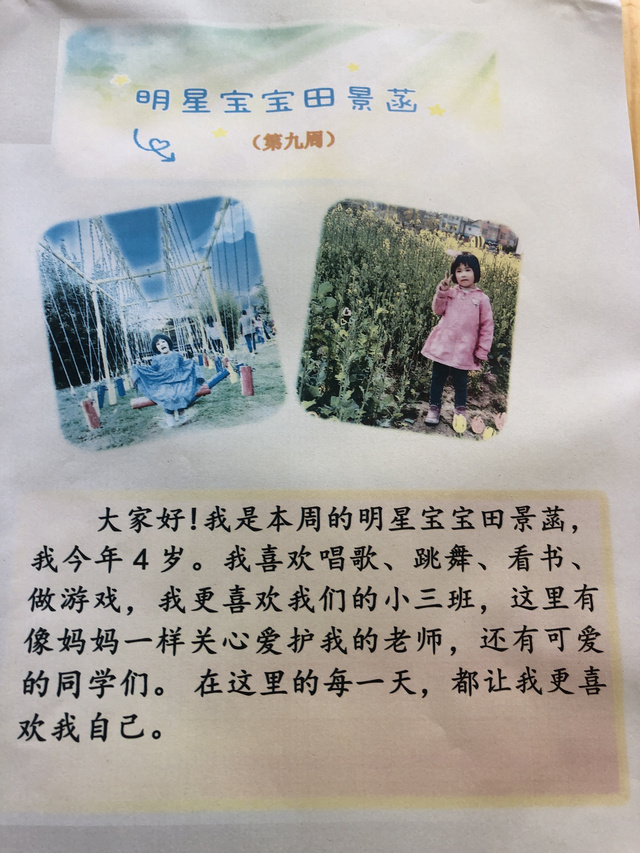 明星宝宝田景菡
（第九周）
大家好!我是本周的明星宝宝田景菡，
我今年4岁。我喜欢唱歌、跳舞、看书、
做游戏，我更喜欢我们的小三班，这里有
像妈妈一样关心爱护我的老师，还有可爱
的同学们。 在这里的每一天，都让我更喜
欢我自己。